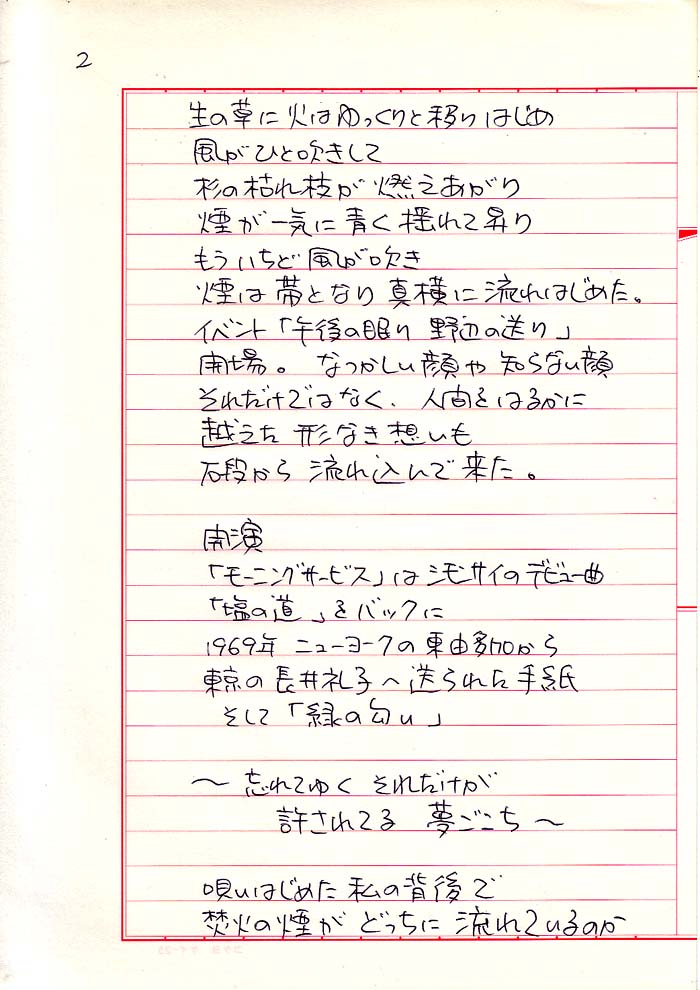 2
生の草に火はゆっくりと移りはじめ
風がひと吹きして
杉の枯れ枝が燃えあがり
煙が一気に青く揺れて昇り
もういちど風が吹き
煙は帯となり真横に流れはじめた。
イベント「午後の眠り 野辺の送り」
開場。 なつかしい顔や知らない顔
それだけではなく、人間をはるかに
越えた 形なき想いも
石段から 流れ込んで来た。
開演
「モーニングサービス」はシモンサイのデビュー曲
「塩の道」をバックに
1969年 ニューヨークの東由多加から
東京の長井礼子へ送られた手紙
そして「緑の匂い」
〜 忘れてゆく それだけが
許されてる 夢ごこち 〜
唄いはじめた私の背後で
焚火の煙が どっちに流れているのか